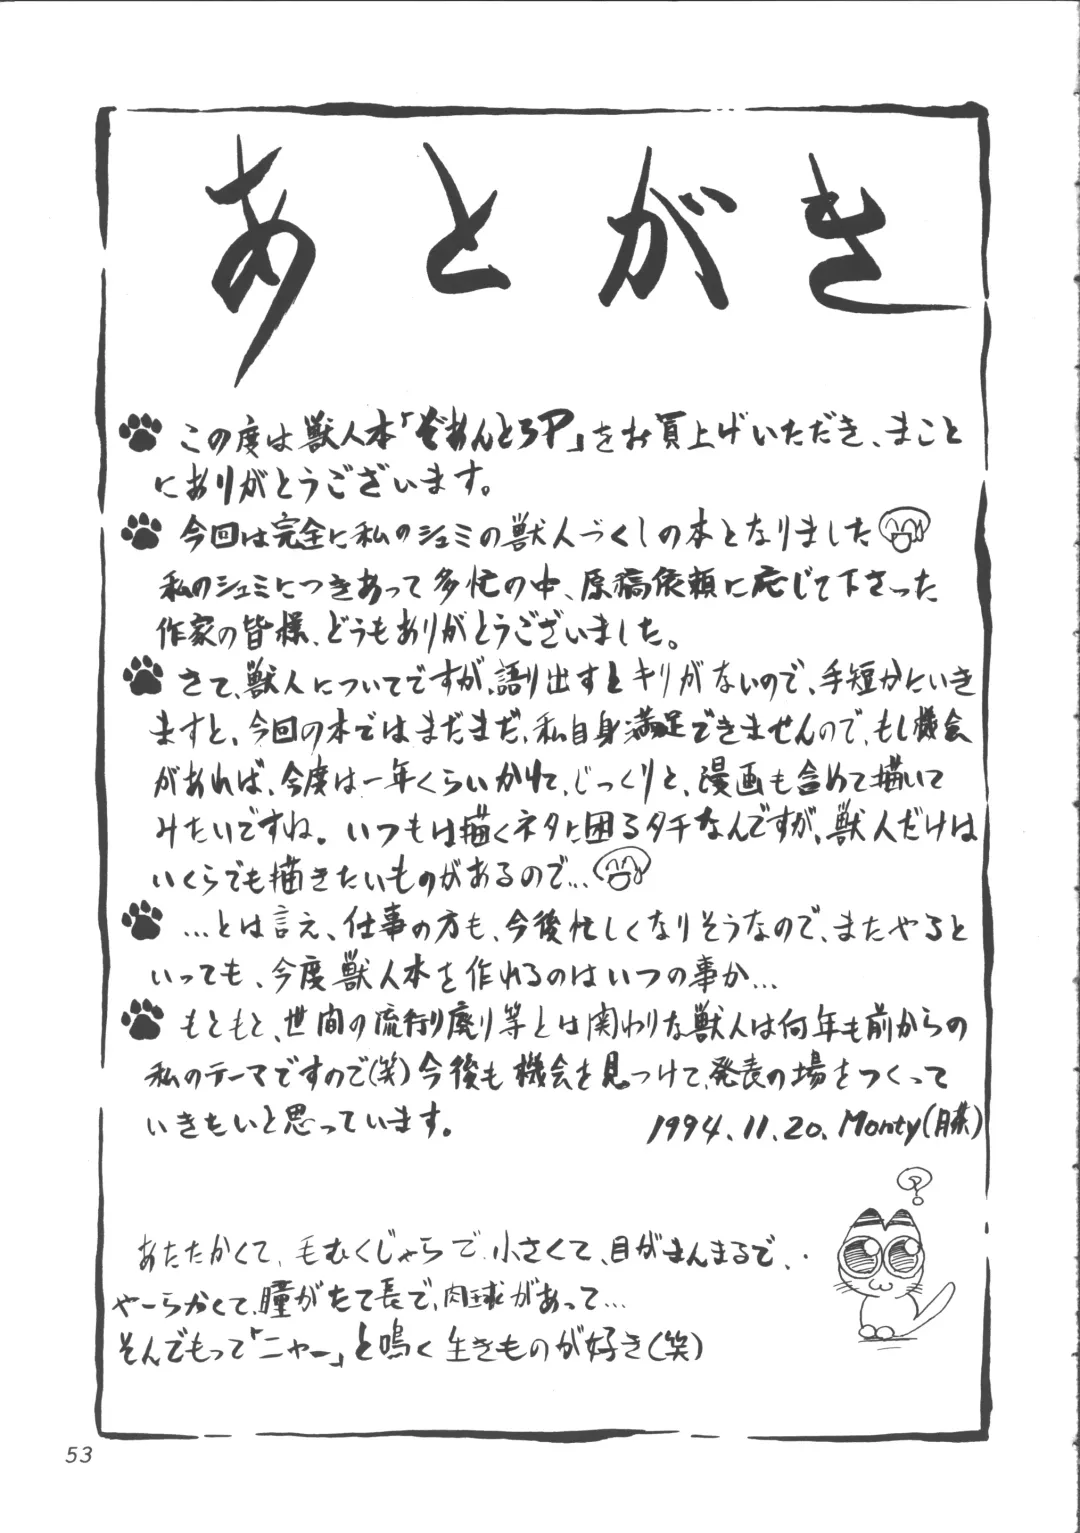 あとがき
この度は獣人本「ぞあんとろP」をお買上げいただき、まこと
にありがとうございます。
今回は完全に私のシュミの獣人づくしの本となりました
私のシュミにつきあって多忙の中、原稿依頼に応じて下さった
作家の皆様、どうもありがとうございました。
さて、獣人についてですが、語り出すとキリがないので、手短かにいき
ますと、今回の本ではまだまだ、私自身満足できませんので、もし機会
があれば、今度は一年くらいかけて、じっくりと、漫画も含めて描いて
みたいですね。いつもは描くネタに困るタチなんですが、獣人だけは
いくらでも描きたいものがあるので...
...とは言え、仕事の方も、今後忙しくなりそうなので、またやると
いっても、今度獣人本を作れるのはいつの事か...
もともと、世間の流行り廃り等とは関わりな獣人は何年も前からの
私のテーマですので(笑)今後も機会を見つけて、発表の場をつくって
いきたいと思っています。
1994.11.20. Monty(藤)
?
あたたかくて、毛むくじゃらで、小さくて、目がまんまるで、.
やーらかくて、瞳がたて長で、肉球があって...
そんでもって「ニャー」と鳴く生きものが好き(笑)
53